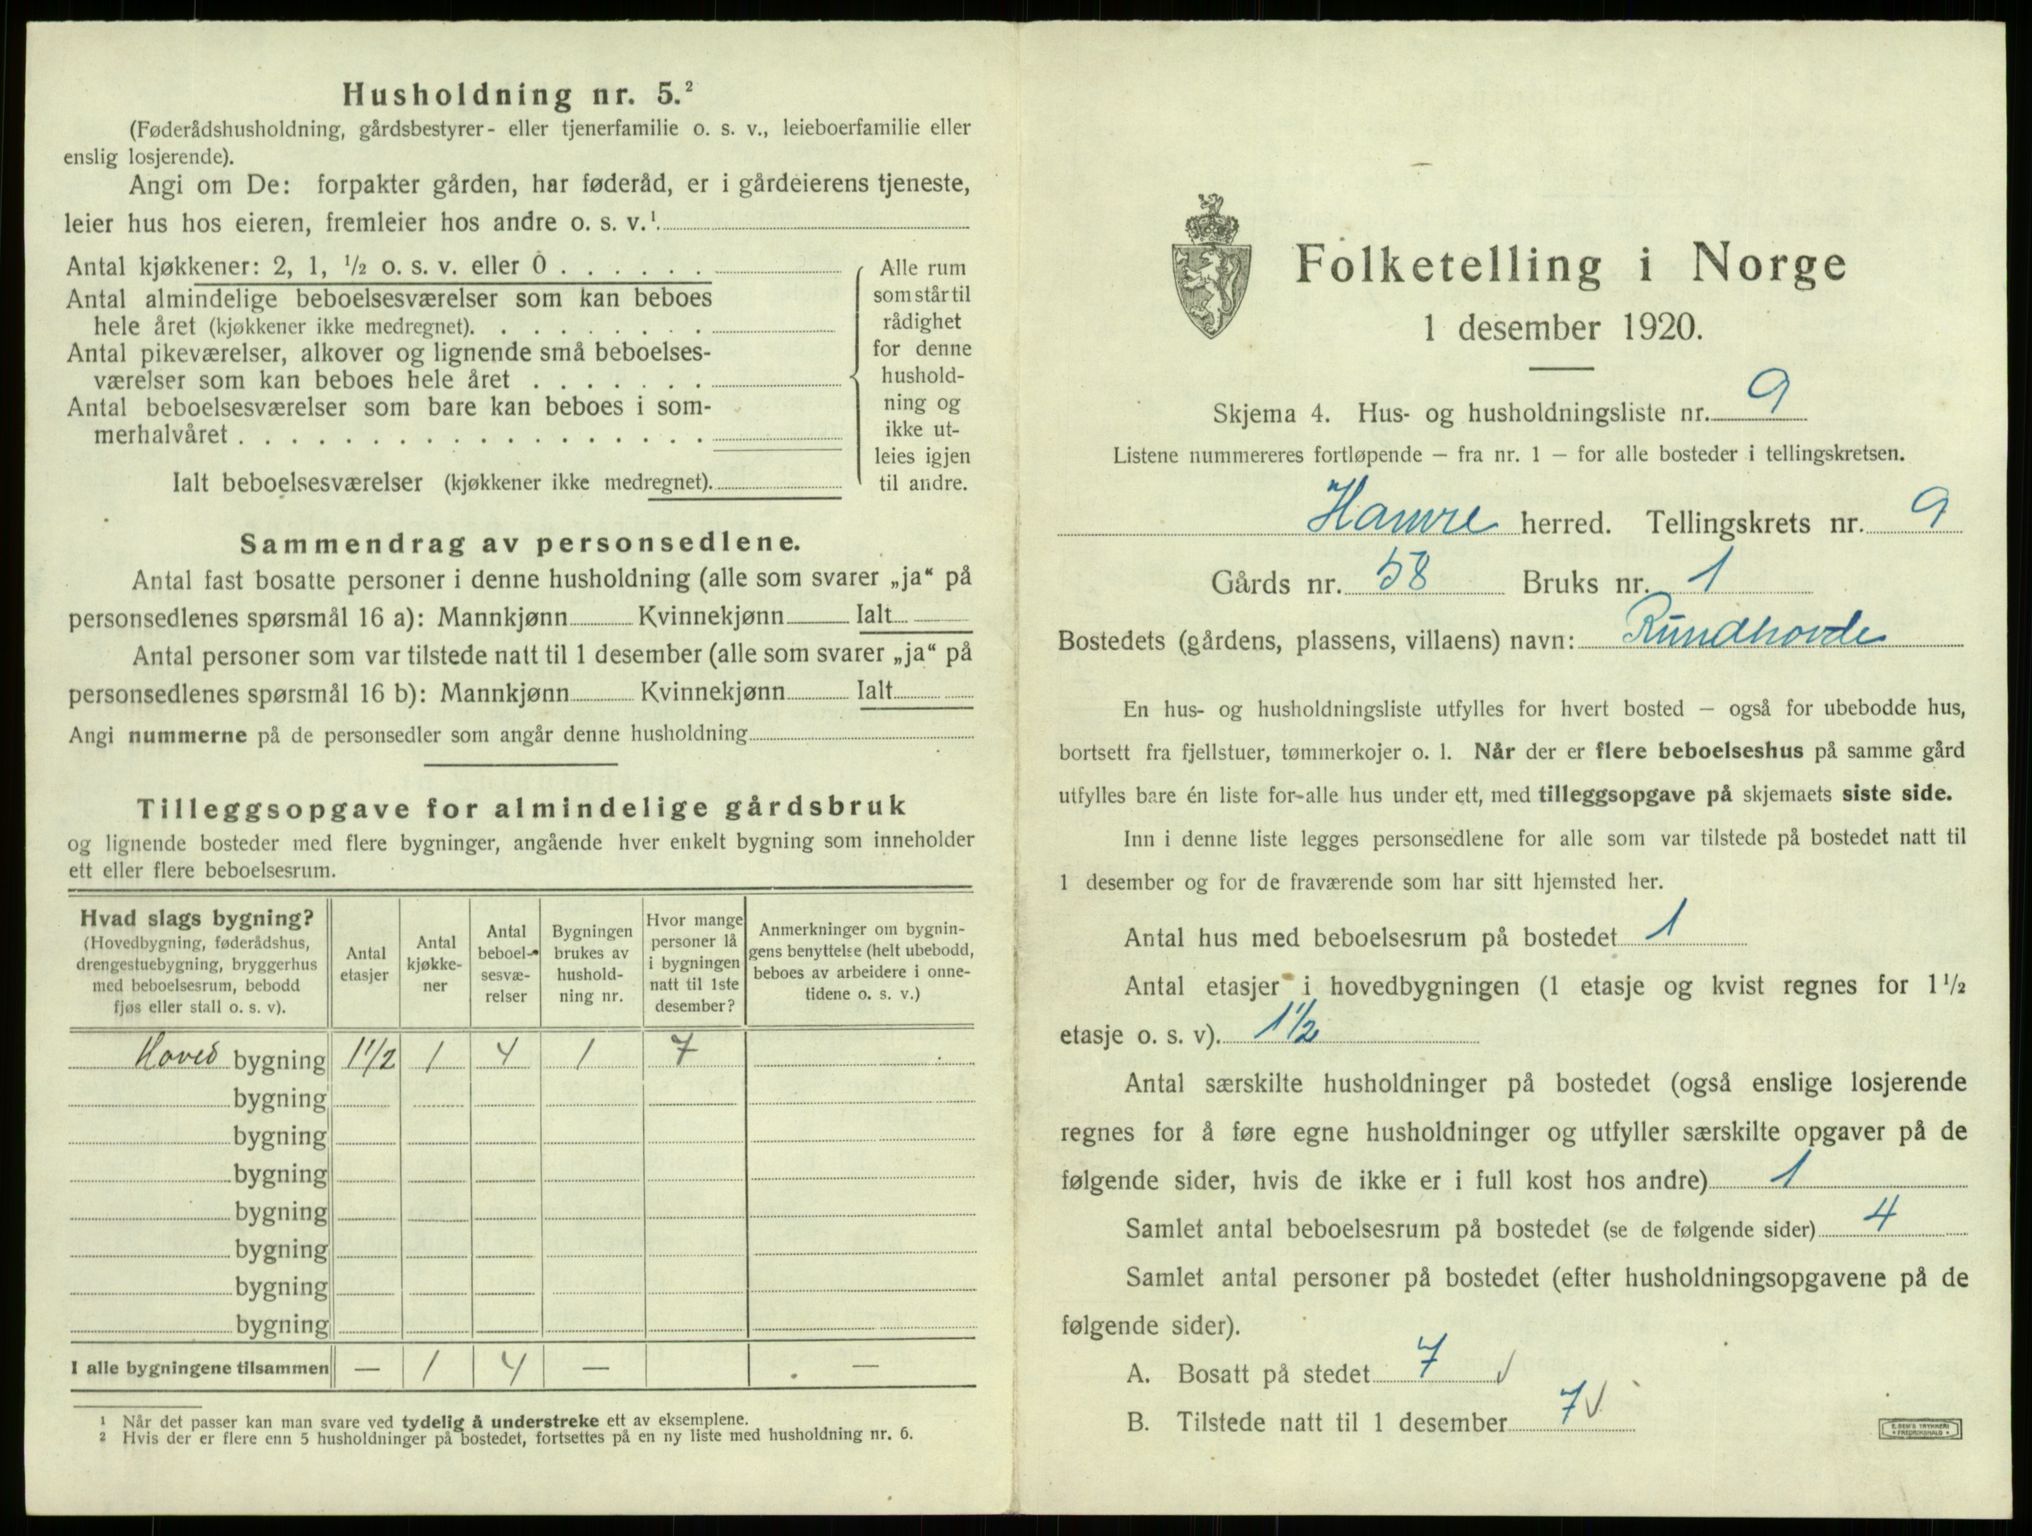 Husholdning nr. 5.²
(Føderådshusholdning, gårdsbestyrer- eller tjenerfamilie o. s. v., leieboerfamilie eller
enslig losjerende).
Angi om De: forpakter gården, har føderåd, er i gårdeierens tjeneste,
leier hus hos eieren, fremleier hos andre o. s. v.¹
Antal kjøkkener: 2, 1, ½ o. s. v. eller 0 . . . . . .
Antal almindelige beboelsesværelser som kan beboes
hele året (kjøkkener ikke medregnet). . . . . . . . .
Antal pikeværelser, alkover og lignende små beboelses-
værelser som kan beboes hele året . . . . . . .
Antal beboelsesværelser som bare kan beboes i som-
merhalvåret . . . . . . . . . . . . . . . . . .
Ialt beboelsesværelser (kjøkkener ikke medregnet).
Alle rum
som står til
rådighet
for denne
hushold-
ning og
ikke ut-
leies igjen
til andre.
Sammendrag av personsedlene.
Antal fast bosatte personer i denne husholdning (alle som svarer „ja“ på
personsedlenes spørsmål 16 a): Mannkjønn Kvinnekjønn Ialt
Antal personer som var tilstede natt til 1 desember (alle som svarer „ja“ på
personsedlenes spørsmål 16 b): Mannkjønn Kvinnekjønn Ialt
Angi nummerne på de personsedler som angår denne husholdning
Tilleggsopgave for almindelige gårdsbruk
og lignende bosteder med flere bygninger, angående hver enkelt bygning som inneholder
ett eller flere beboelsesrum.
Hvad slags bygning?
(Hovedbygning, føderådshus,
drengestuebygning, bryggerhus
med beboelsesrum, bebodd
fjøs eller stall o. s. v).
Antal
etasjer
Antal
kjøkke-
ner
Antal
beboel-
sesvæ-
relser
Bygningen
brukes av
hushold-
ning nr.
Hvor mange
personer lå
i bygningen
natt til 1ste
desember?
Anmerkninger om bygnin-
gens benyttelse (helt ubebodd,
beboes av arbeidere i onne-
tidene o. s. v.)
Hoved bygning 1½ 1 4 1 7
bygning
bygning
bygning
bygning
bygning
bygning
bygning
I alle bygningene tilsammen — 1 4 — —
¹ Når det passer kan man svare ved tydelig å understreke ett av eksemplene.
² Hvis der er flere enn 5 husholdninger på bostedet, fortsettes på en ny liste med husholdning nr. 6.
Folketelling i Norge
1 desember 1920.
Skjema 4. Hus- og husholdningsliste nr. 9
Listene nummereres fortløpende – fra nr. 1 – for alle bosteder i tellingskretsen.
Hamre herred. Tellingskrets nr. 9
Gårds nr. 58 Bruks nr. 1
Bostedets (gårdens, plassens, villaens) navn: Rundhovde
En hus- og husholdningsliste utfylles for hvert bosted – også for ubebodde hus,
bortsett fra fjellstuer, tømmerkojer o. l. Når der er flere beboelseshus på samme gård
utfylles bare én liste for alle hus under ett, med tilleggsopgave på skjemaets siste side.
Inn i denne liste legges personsedlene for alle som var tilstede på bostedet natt til
1 desember og for de fraværende som har sitt hjemsted her.
Antal hus med beboelsesrum på bostedet 1
Antal etasjer i hovedbygningen (1 etasje og kvist regnes for 1½
etasje o. s. v). 1½
Antal særskilte husholdninger på bostedet (også enslige losjerende
regnes for å føre egne husholdninger og utfyller særskilte opgaver på de
følgende sider, hvis de ikke er i full kost hos andre) 1
Samlet antal beboelsesrum på bostedet (se de følgende sider) 4
Samlet antal personer på bostedet (efter husholdningsopgavene på de
følgende sider).
A. Bosatt på stedet 7 √
B. Tilstede natt til 1 desember 7 √
E. SEM'S TRYKKERI
• FREDRIKSHALD •